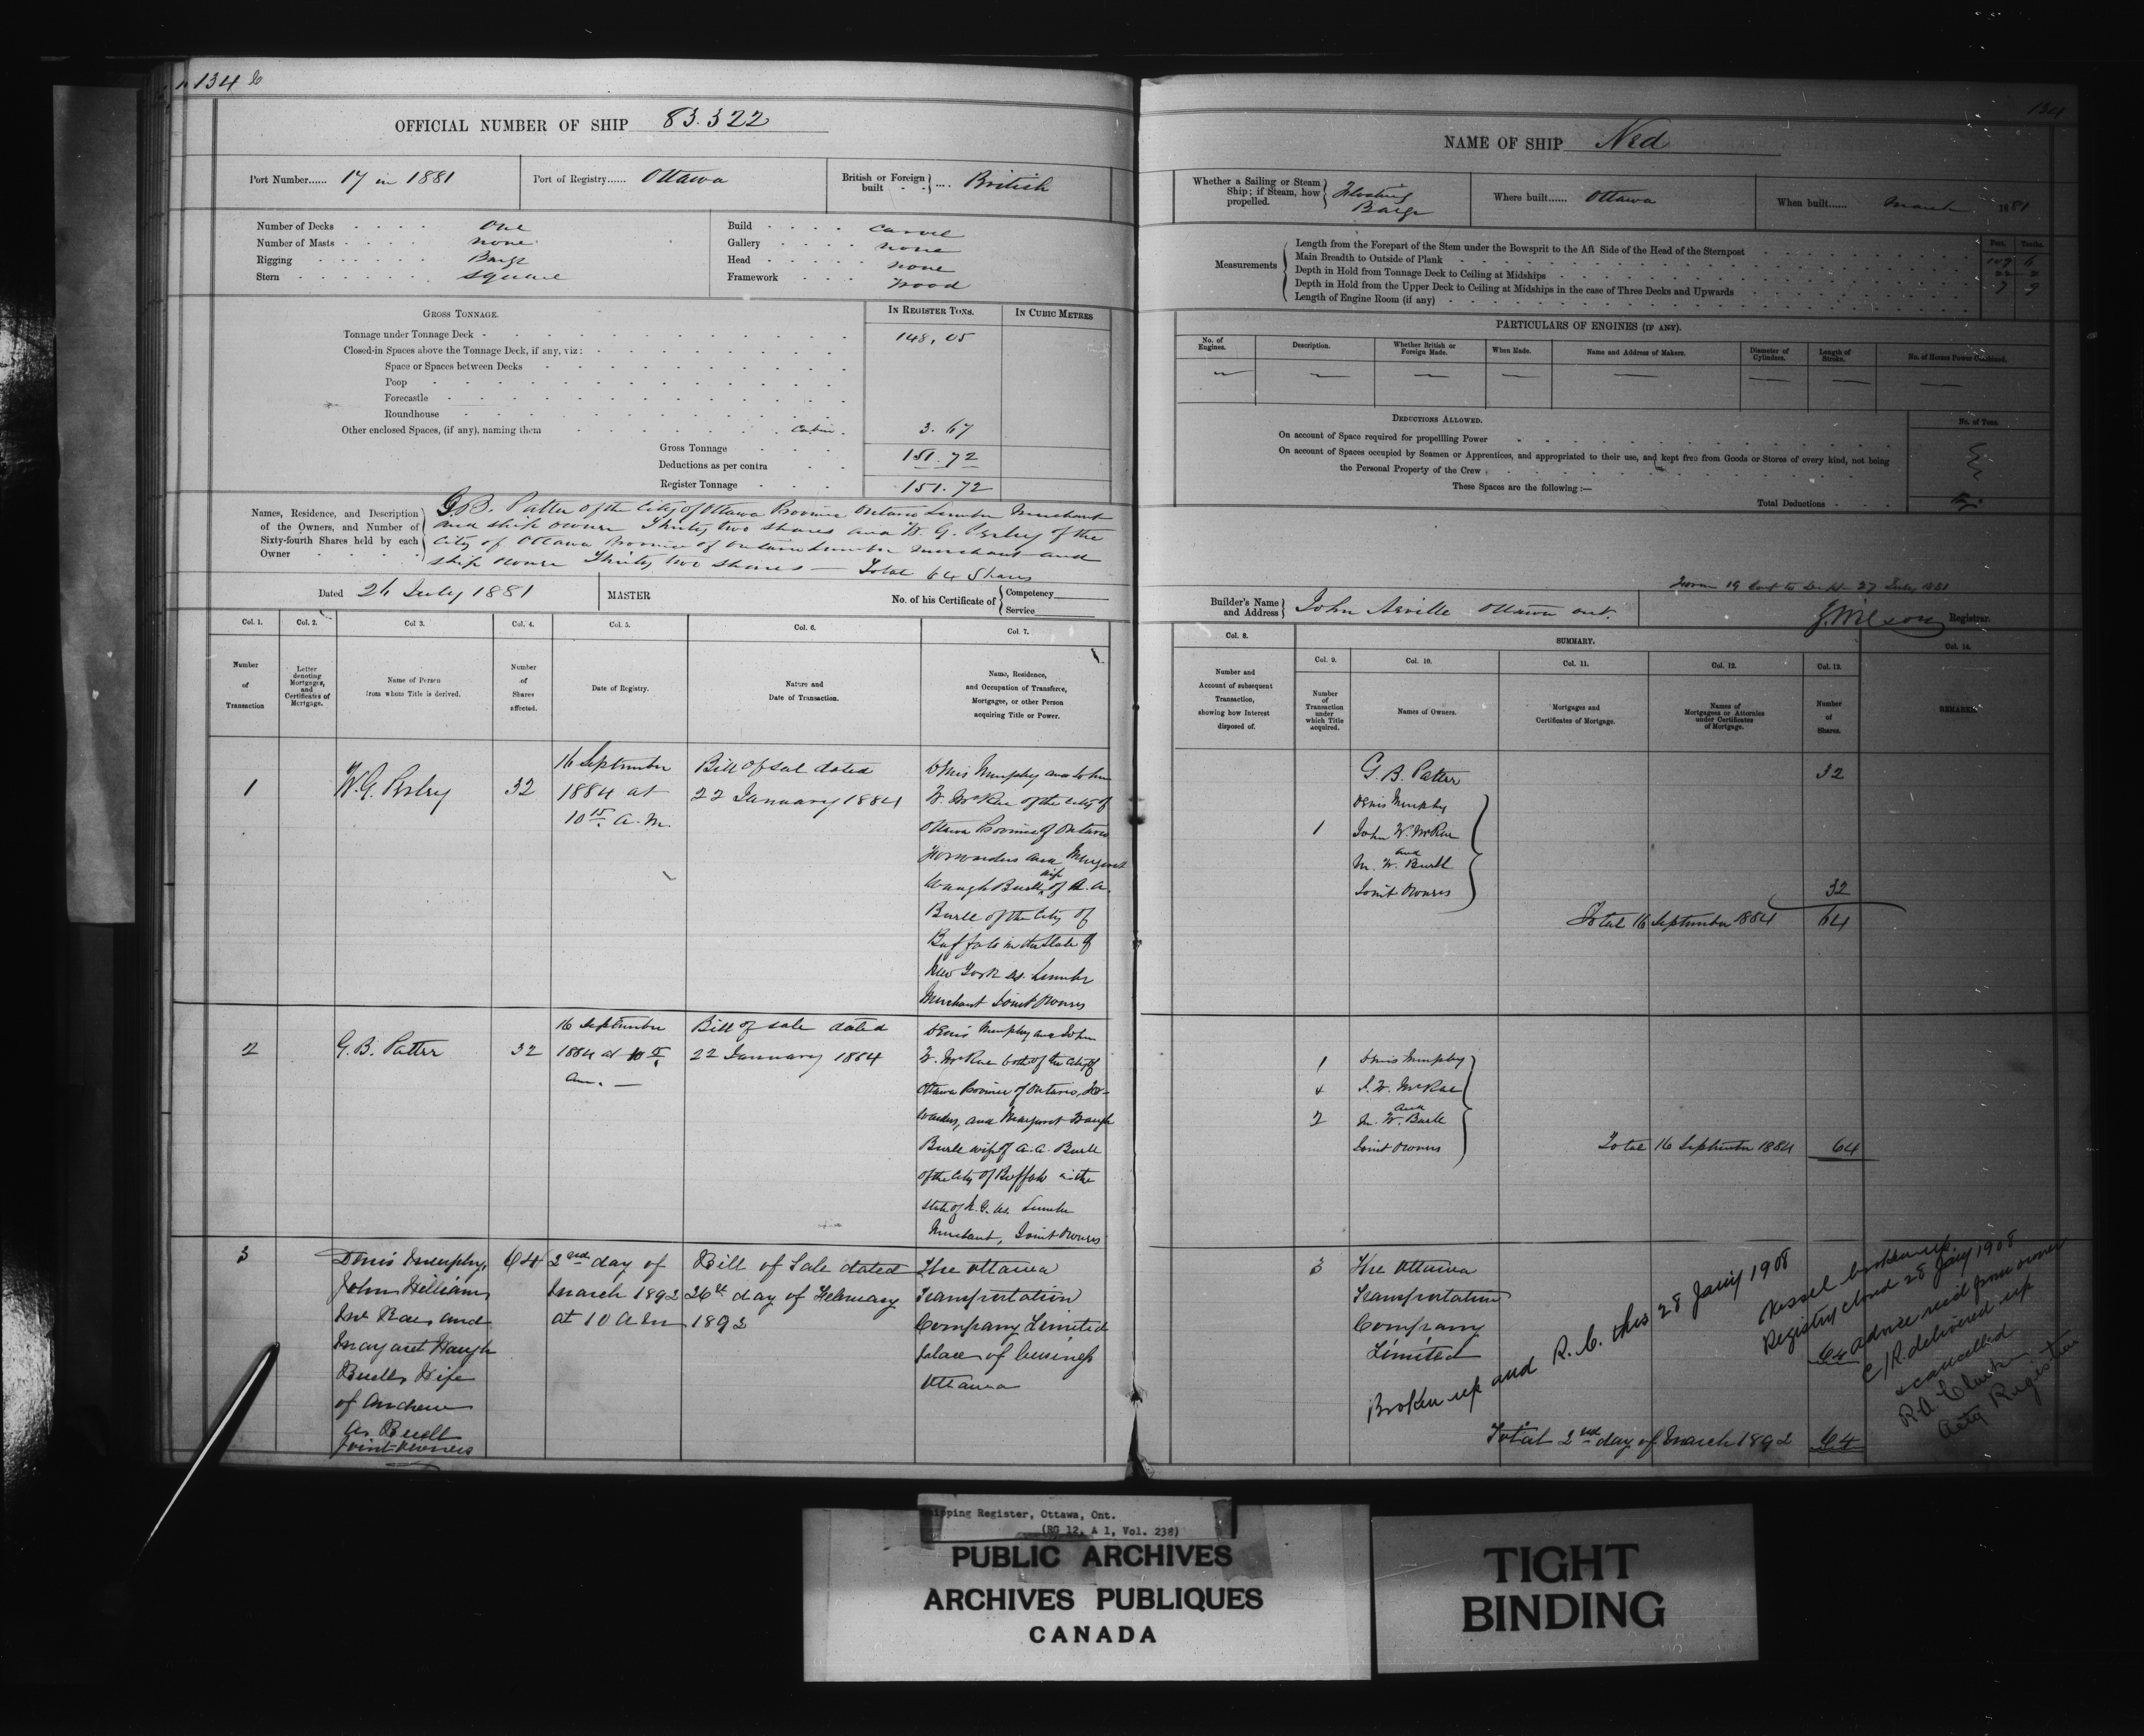 134
OFFICIAL NUMBER OF SHIP 83.322
Port Number...... 17 in 1881
Port of Registry...... Ottawa
British or Foreign built British
Number of Decks One
Number of Masts none
Rigging Barge
Stern square
Build carvel
Gallery none
Head none
Framework wood
GROSS TONNAGE.
IN REGISTER TONS.
IN CUBIC METRES
Tonnage under Tonnage Deck 148.05
Closed-in Spaces above the Tonnage Deck, if any, viz:
Space or Spaces between Decks
Poop
Forecastle
Roundhouse
Other enclosed Spaces, (if any), naming them Cabin. 3.67
Gross Tonnage 151.72
Deductions as per contra
Register Tonnage 151.72
Names, Residence, and Description of the Owners, and Number of Sixty-fourth Shares held by each Owner
G.B. Patter of the City of Ottawa Province Ontario Lumber Merchant
and ship owner Thirty two shares and W. G. Perley of the
City of Ottawa Province of Ontario Lumber Merchant and
ship owner Thirty two shares — Total 64 Shares
Dated 26 July 1881
MASTER
No. of his Certificate of Competency
Service
Col. 1.
Col. 2.
Col 3.
Col. 4.
Col. 5.
Col. 6.
Col. 7.
Number of Transaction
Letter denoting Mortgages, and Certificates of Mortgage.
Name of Person from whom Title is derived.
Number of Shares affected.
Date of Registry.
Nature and Date of Transaction.
Name, Residence, and Occupation of Transferee, Mortgagee, or other Person acquiring Title or Power.
1
W.G. Perley
32
16 September
1884 at
10 15 A.M.
Bill of sal dated
22 January 1884
Denis Murphy and John
W. McRae of the City of
Ottawa Province of Ontario
Forwarders and Margaret
Waugh Buell wife of A.A.
Buell of the City of
Buffalo in the State of
New York US. Lumber
Merchant Joint Owners
2
G.B. Patter
32
16 September
1884 at 10
am. —
Bill of sale dated
22 January 1884
Denis Murphy and John
W. McRae both of the City of
Ottawa Province of Ontario, For-
warders, and Margaret Waugh
Buell wife of A.A. Buell
of the City of Buffalo in the
State of N.Y. US. Lumber
Merchant, Joint Owners
3
Denis Murphy,
John William
McRae, and
Margaret Waugh
Buell, Wife
of Andrew
A. Buell
Joint Owners
64
2nd day of
March 1892
at 10 A M
Bill of Sale dated
26th day of February
1892
The Ottawa
Transportation
Company Limited
place of business
Ottawa
134
NAME OF SHIP Ned
Whether a Sailing or Steam Ship; if Steam, how propelled. Floating Barge
Where built...... Ottawa
When built...... March 1881
Measurements
Feet. Tenths.
Length from the Forepart of the Stem under the Bowsprit to the Aft Side of the Head of the Sternpost 109 6
Main Breadth to Outside of Plank 22 2
Depth in Hold from Tonnage Deck to Ceiling at Midships 7 9
Depth in Hold from the Upper Deck to Ceiling at Midships in the case of Three Decks and Upwards
Length of Engine Room (if any)
PARTICULARS OF ENGINES (IF ANY).
No. of Engines.
Description.
Whether British or Foreign Made.
When Made.
Name and Address of Makers.
Diameter of Cylinders.
Length of Stroke.
No. of Horses Power Combined.
DEDUCTIONS ALLOWED.
No. of Tons.
On account of Space required for propelling Power
On account of Spaces occupied by Seamen or Apprentices, and appropriated to their use, and kept free from Goods or Stores of every kind, not being
the Personal Property of the Crew
These Spaces are the following :—
Total Deductions
27 July 1881
Builder's Name and Address John Ottawa Ont.
J. Wilson Registrar.
Col. 8.
SUMMARY.
Col. 14.
Col. 9.
Col. 10.
Col. 11.
Col. 12.
Col. 13.
Number and Account of subsequent Transaction, showing how Interest disposed of.
Number of Transaction under which Title acquired.
Names of Owners.
Mortgages and Certificates of Mortgage.
Names of Mortgagees or Attornies under Certificates of Mortgage.
Number of Shares.
REMARKS.
G. B. Patter 32
Denis Murphy
1 John W. McRae
and
M. W. Buell
Joint Owners 32
Total 16 September 1884 64
1 Denis Murphy
& J. W. McRae
and
2 M. W. Buell
Joint Owners
Total 16 September 1884 64
3 The Ottawa
Transportation
Company
Limited
64
Broken up and R. C. this 28 Jany 1908
Vessel broken up.
Registry closed 28 Jany 1908
advice recd from owner
C/R. delivered up
& cancelled
Actg Registrar
Total 2nd day of March 1892 64
Shipping Register, Ottawa, Ont.
(RG 12, A 1, Vol. 238)
PUBLIC ARCHIVES
ARCHIVES PUBLIQUES
CANADA
TIGHT
BINDING